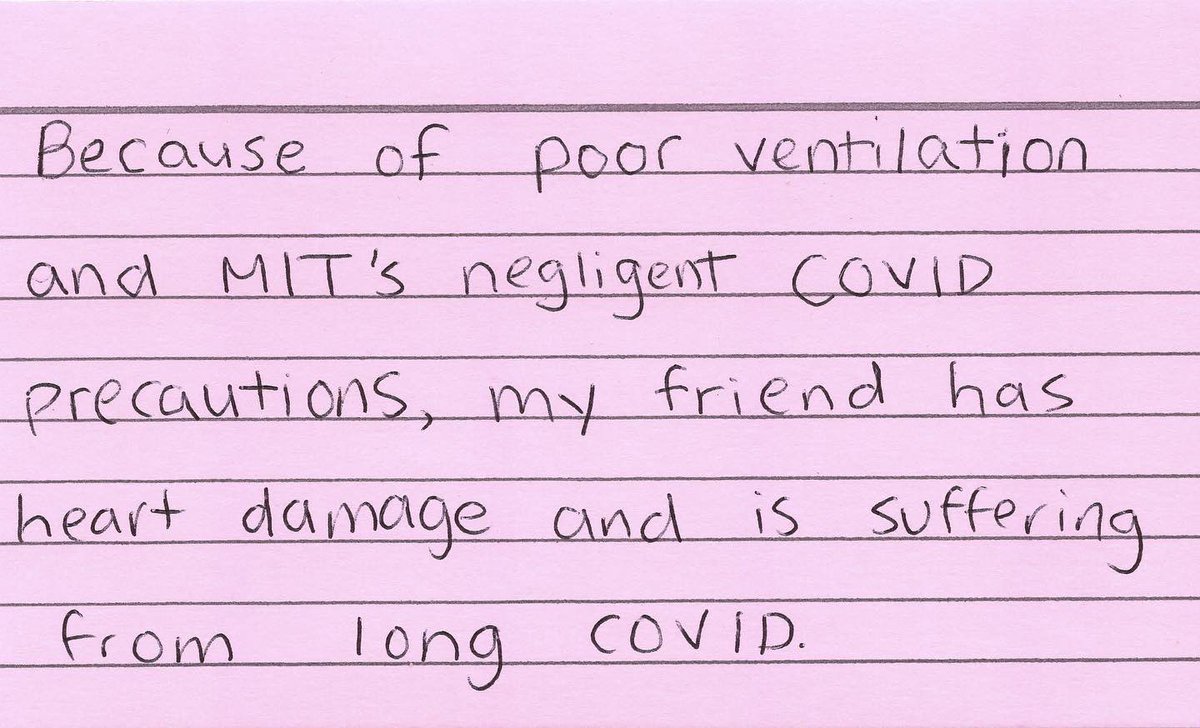 Because of poor ventilation
and MIT's negligent COVID
precautions, my friend has
heart damage and is suffering
from long COVID.